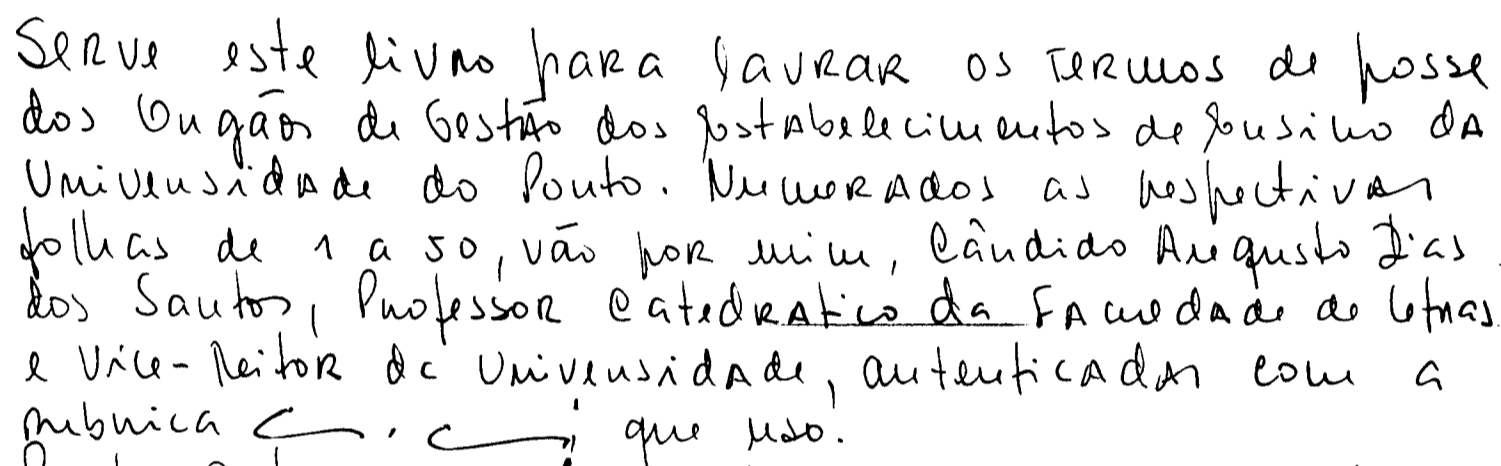 Serve este livro para lavrar os termos de posse
dos Orgãos de Gestão dos Estabelecimentos de Ensino da
Universidade do Porto. Numerados as respectivas
folhas de 1 a 50, vão por mim, Cândido Augusto Dias
dos Santos, Professor Catedratico da Faculdade de Letras
e Vice-Reitor da Universidade, autenticadas com a
rubrica que uso.